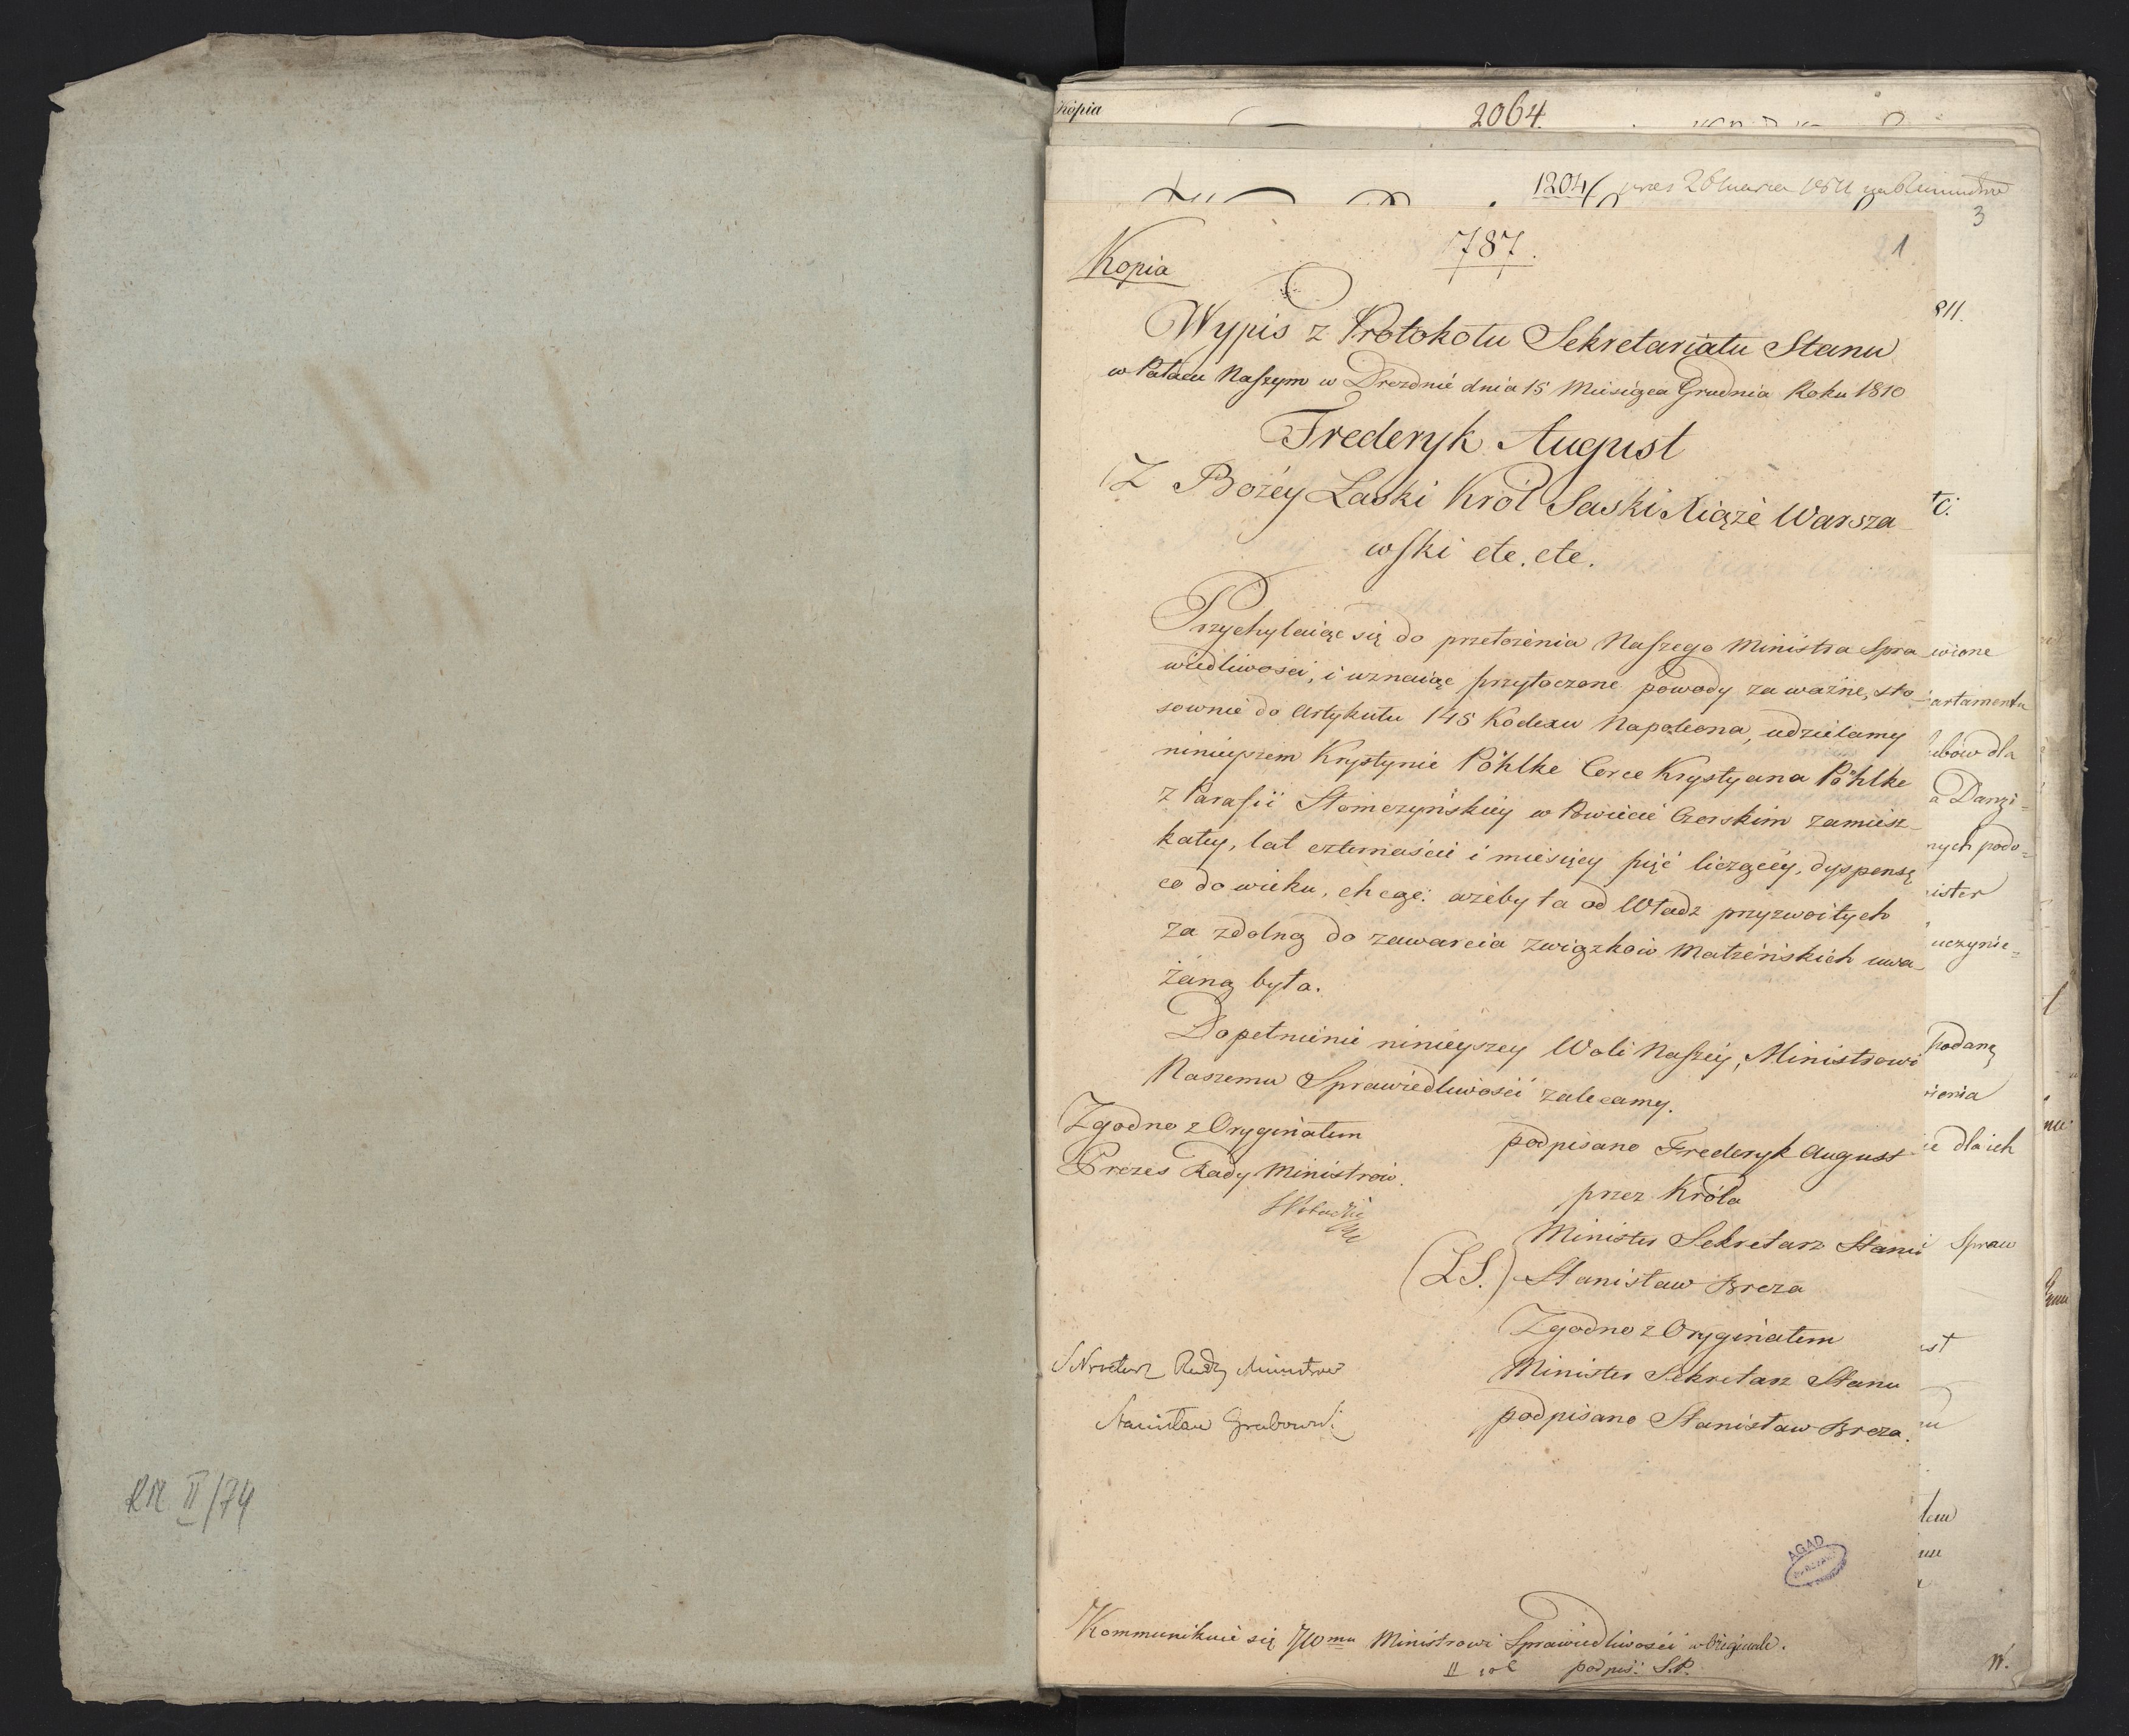 RM II/74
Kopia
2064.
1204
3
Kopia
787.
21
Wypis z Protokołu Sekretariatu Stanu
w Pałacu Naszym w Dreznie dnia 15 Miesiąca Grudnia Roku 1810
Frederyk August
Z Bożéy Łaski Król Saski Xiąże Warsza
wski etc. etc.
Przychylaiąc się do przełożenia Naszego Ministra Spra
wiedliwości, i uznaiąc przytoczone powody za ważne, sto
sownie do Artykułu 145 Kodexu Napoleona, udzielamy
ninieyszem Krystynie Pöhlke Corce Krystyana Pöhlke
z Parafii Słomczyńskiéy w Powiecie Czerskim zamiesz
kałey, lat czternaście i miesięcy pięć liczącéy, dyspensę
co do wieku, chcąc: ażeby ta od Władz przyzwoitych
za zdolną do zawarcia związków Małżeńskich uwa
żaną była.
Dopełnienie ninieyszey Woli Naszéy, Ministrowi
Naszemu Sprawiedliwości zalecamy.
Zgodno z Oryginałem
Prezes Rady Ministrów.
podpisano Frederyk August
przez Króla
Minister Sekretarz Stanu
(LS.) Stanisław Breza
Zgodno z Oryginałem
Minister Sekretarz Stanu
podpisano Stanisław Breza.
Sekretarz Rady Ministrów
Stanisław Grabowski
AGAD
Kommunikuie się JW mu Ministrowi Sprawiedliwości w Originale.
podpis: S.P.
811.
tc.
wione
artamentu
ubów dla
a Danzi=
nych podo=
ister
uczynie=
podaną
ienia
ie dla ich
Spraw
st